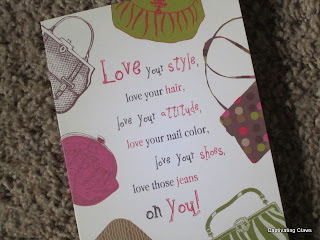 Love your style,
love your hair,
love your attitude,
love your nail color,
love your shoes,
love those jeans
on you!
Captivating Claws